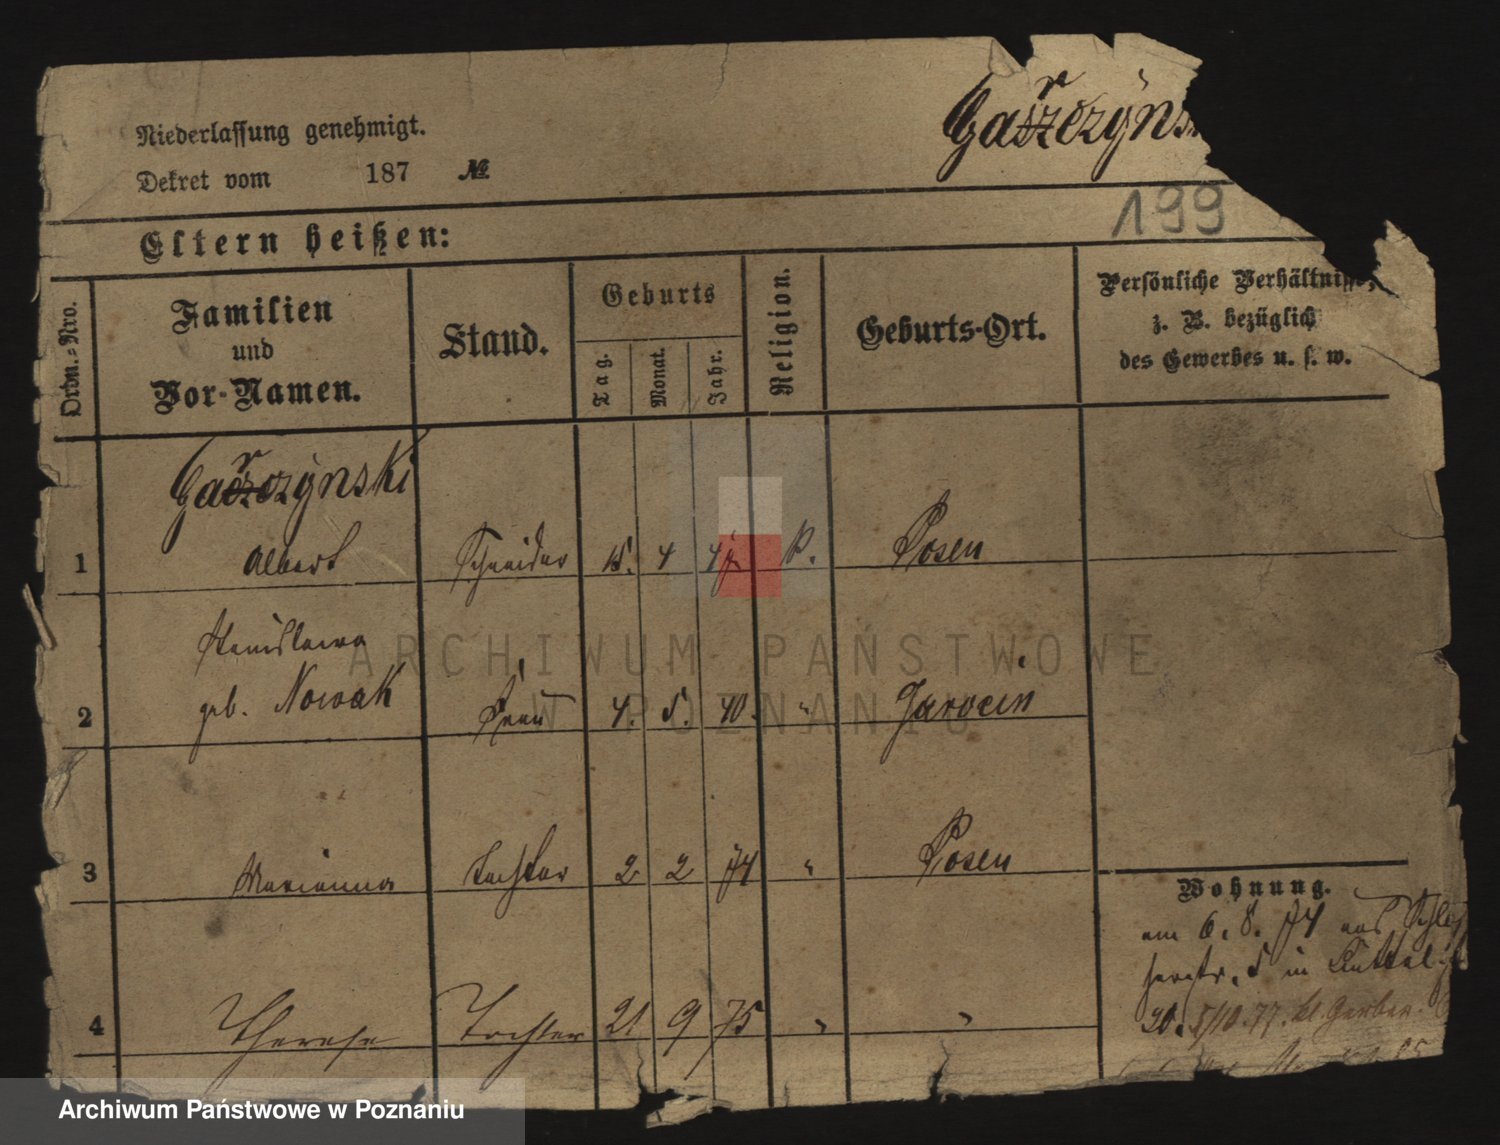 Niederlassung genehmigt.
Dekret vom 187 №
Garczyns
199
Eltern heißen:
Ordn.=Nro.
Familien
und
Vor-Namen.
Stand.
Geburts
Tag.
Monat.
Jahr.
Religion.
Geburts-Ort.
Persönliche Verhältnisse,
z. B. bezüglich
des Gewerbes u. s. w.
Garczynski
1 Albert Schneider 15. 4 47 k. Posen
Stanislawa
2 geb. Nowak Frau 4. 5. 40. " Jarocin
3 Marianna Tochter 2 2 74 " Posen
Wohnung.
am 6. 8. 74 aus
5 in
4 Therese Tochter 21 9 75 " "
20. 5/10. 77. kl. Gerber
ARCHIWUM PAŃSTWOWE
W POZNANIU
Archiwum Państwowe w Poznaniu